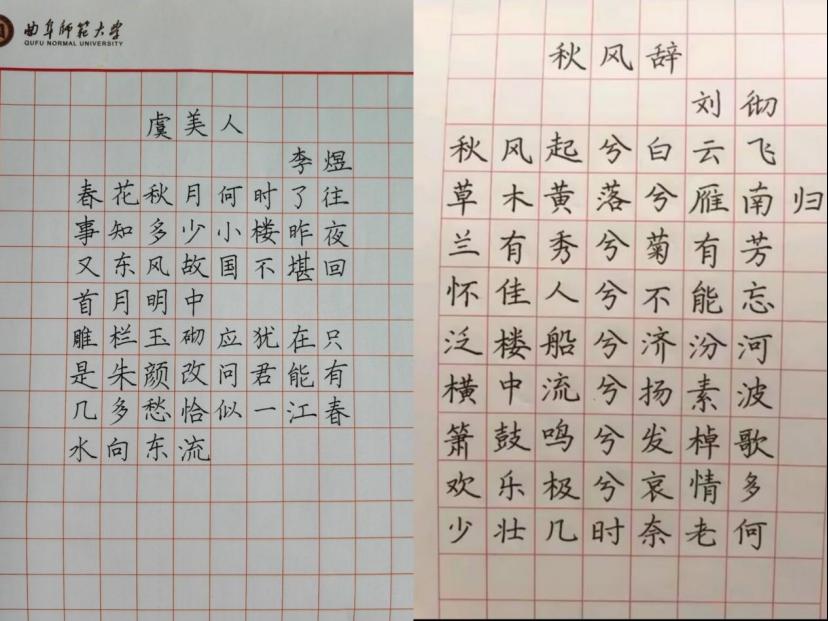 曲阜师范大学
QUFU NORMAL UNIVERSITY
虞美人
李煜
春花秋月何时了往
事知多少小楼昨夜
又东风故国不堪回
首月明中
雕栏玉砌应犹在只
是朱颜改问君能有
几多愁恰似一江春
水向东流
秋风辞
刘彻
秋风起兮白云飞
草木黄落兮雁南归
兰有秀兮菊有芳
怀佳人兮不能忘
泛楼船兮济汾河
横中流兮扬素波
箫鼓鸣兮发棹歌
欢乐极兮哀情多
少壮几时奈老何